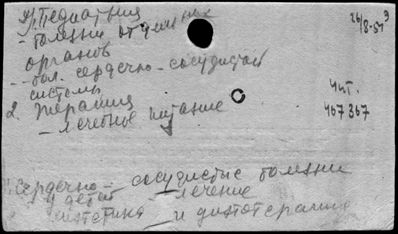 Педиатрия
- болезни отдельных
органов
- бол. сердечно-сосудистой
системы
2. Терапия
- лечебное питание
26/8-57
Чит.
467367
Сердечно-сосудистые болезни
у детей - лечение
и диэтотерапия